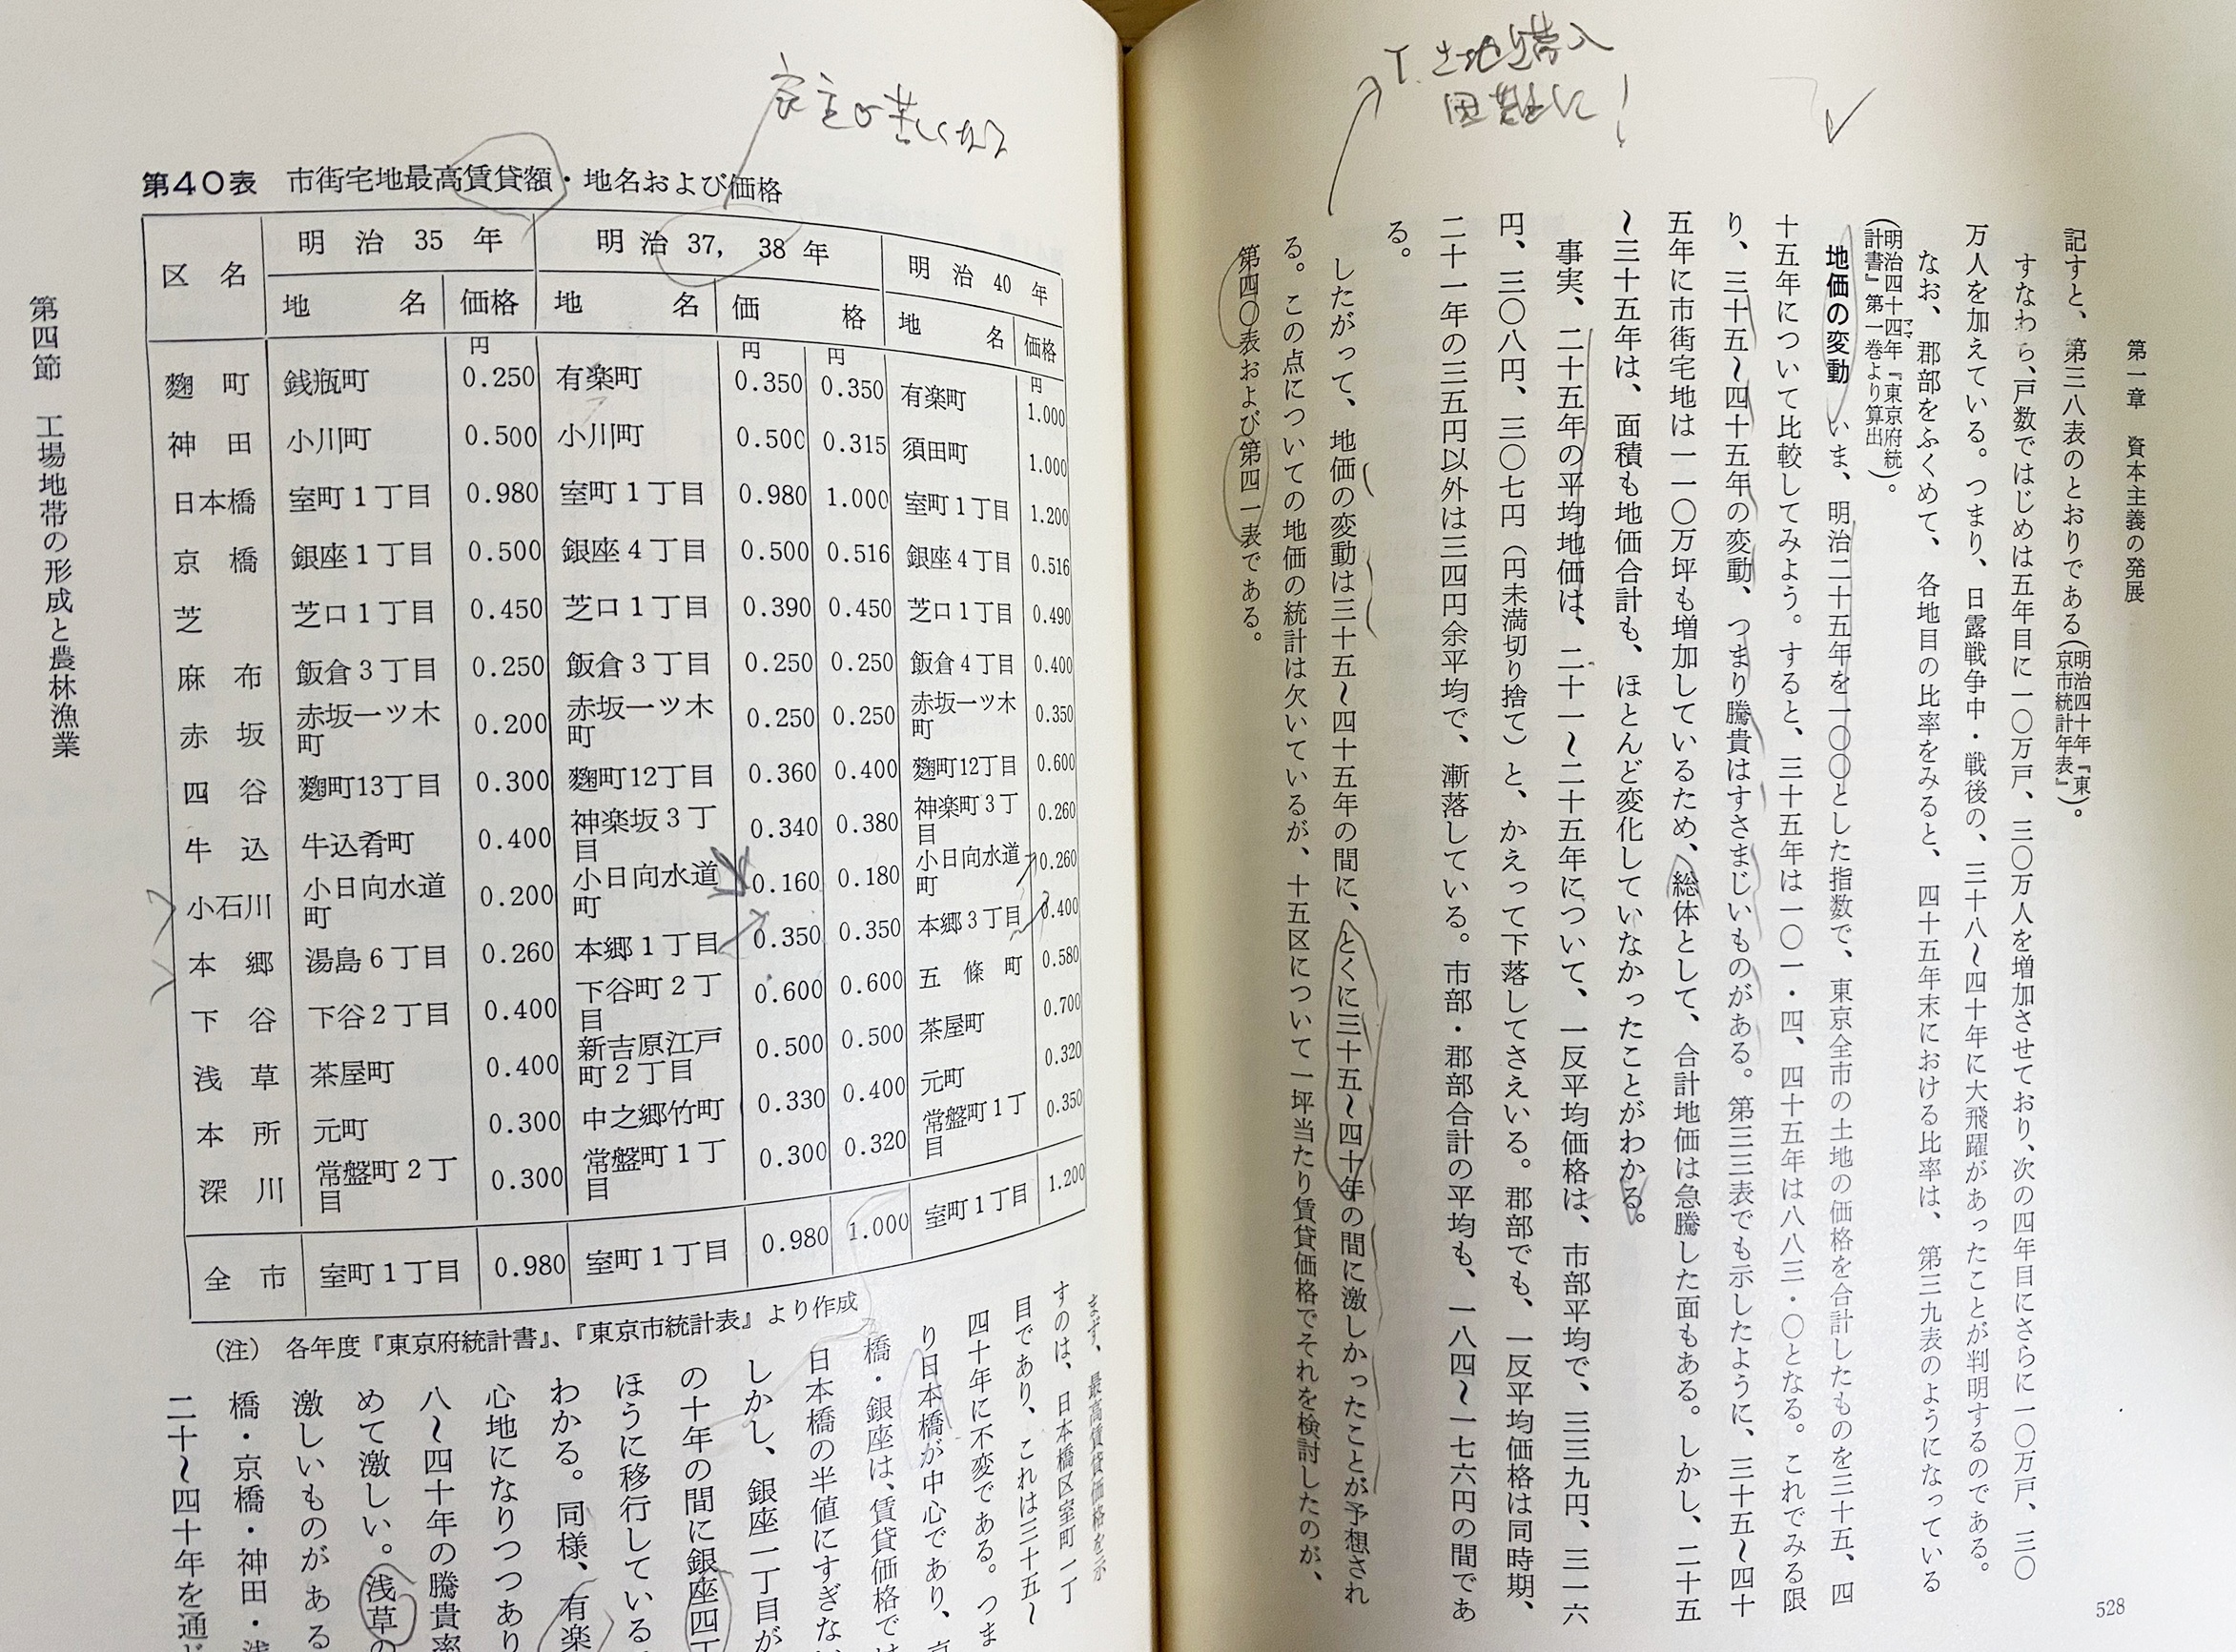 T. 土地購入
困難に!
第一章 資本主義の発展
記すと、第三八表のとおりである(明治四十年『東京市統計年表』)。
すなわち、戸数ではじめは五年目に一〇万戸、三〇万人を増加させており、次の四年目にさらに一〇万戸、三〇
万人を加えている。つまり、日露戦争中・戦後の、三十八〜四十年に大飛躍があったことが判明するのである。
なお、郡部をふくめて、各地目の比率をみると、四十五年末における比率は、第三九表のようになっている
(明治四十四年『東京府統計書』第一巻より算出)。
ママ
地価の変動 いま、明治二十五年を一〇〇とした指数で、東京全市の土地の価格を合計したものを三十五、四
十五年について比較してみよう。すると、三十五年は一〇一・四、四十五年は八八三・〇となる。これでみる限
り、三十五〜四十五年の変動、つまり騰貴はすさまじいものがある。第三三表でも示したように、三十五〜四十
五年に市街宅地は一一〇万坪も増加しているため、総体として、合計地価は急騰した面もある。しかし、二十五
〜三十五年は、面積も地価合計も、ほとんど変化していなかったことがわかる。
事実、二十五年の平均地価は、二十一〜二十五年について、一反平均価格は、市部平均で、三三九円、三一六
円、三〇八円、三〇七円(円未満切り捨て)と、かえって下落してさえいる。郡部でも、一反平均価格は同時期、
二十一年の三五円以外は三四円余平均で、漸落している。市部・郡部合計の平均も、一八四〜一七六円の間であ
る。
したがって、地価の変動は三十五〜四十五年の間に、とくに三十五〜四十年の間に激しかったことが予想され
る。この点についての地価の統計は欠いているが、十五区について一坪当たり賃貸価格でそれを検討したのが、
第四〇表および第四一表である。
528
家主も苦しくなる
第40表 市街宅地最高賃貸額・地名および価格
区名 明治35年 明治37, 38年 明治40年
地名 価格 地名 価格 地名 価格
円 円 円 円
麹町 銭瓶町 0.250 有楽町 0.350 0.350 有楽町 1.000
神田 小川町 0.500 小川町 0.500 0.315 須田町 1.000
日本橋 室町1丁目 0.980 室町1丁目 0.980 1.000 室町1丁目 1.200
京橋 銀座1丁目 0.500 銀座4丁目 0.500 0.516 銀座4丁目 0.516
芝 芝口1丁目 0.450 芝口1丁目 0.390 0.450 芝口1丁目 0.490
麻布 飯倉3丁目 0.250 飯倉3丁目 0.250 0.250 飯倉4丁目 0.400
赤坂 赤坂一ツ木町 0.200 赤坂一ツ木町 0.250 0.250 赤坂一ツ木町 0.350
四谷 麹町13丁目 0.300 麹町12丁目 0.360 0.400 麹町12丁目 0.600
牛込 牛込肴町 0.400 神楽坂3丁目 0.340 0.380 神楽町3丁目 0.260
小石川 小日向水道町 0.200 小日向水道町 0.160 0.180 小日向水道町 0.260
本郷 湯島6丁目 0.260 本郷1丁目 0.350 0.350 本郷3丁目 0.400
下谷 下谷2丁目 0.400 下谷町2丁目 0.600 0.600 五條町 0.580
浅草 茶屋町 0.400 新吉原江戸町2丁目 0.500 0.500 茶屋町 0.700
本所 元町 0.300 中之郷竹町 0.330 0.400 元町 0.320
深川 常盤町2丁目 0.300 常盤町1丁目 0.300 0.320 常盤町1丁目 0.350
全市 室町1丁目 0.980 室町1丁目 0.980 1.000 室町1丁目 1.200
(注) 各年度『東京府統計書』、『東京市統計表』より作成
まず、最高賃貸価格を示
すのは、日本橋区室町一丁
目であり、これは三十五〜
四十年に不変である。つま
り日本橋が中心であり、京
橋・銀座は、賃貸価格では
日本橋の半値にすぎない
しかし、銀座一丁目が
の十年の間に銀座四丁
ほうに移行している
わかる。同様、有楽
心地になりつつあり
八〜四十年の騰貴率
めて激しい。浅草の
激しいものがある
橋・京橋・神田・浅
二十〜四十年を通じ
第四節 工場地帯の形成と農林漁業